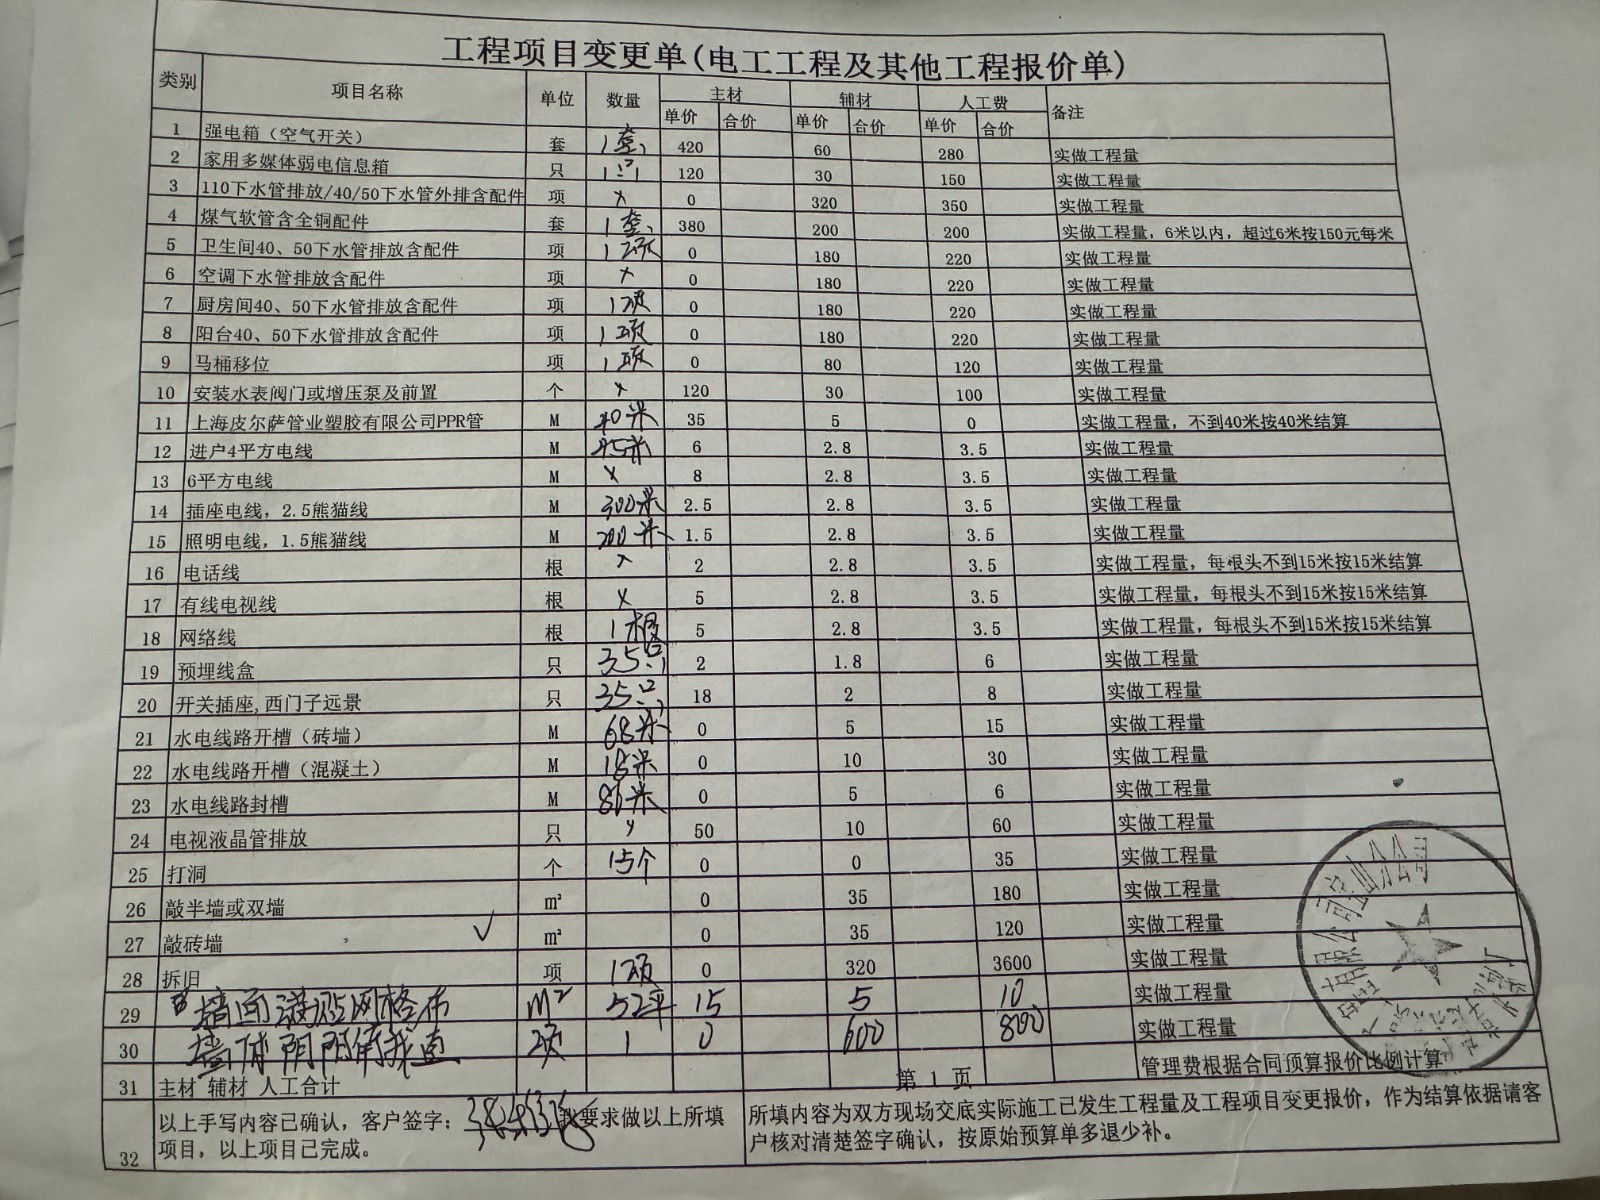 工程项目变更单(电工工程及其他工程报价单)
类别 项目名称 单位 数量 主材 辅材 人工费 备注
单价 合价 单价 合价 单价 合价
1 强电箱（空气开关） 套 1套 420 60 280 实做工程量
2 家用多媒体弱电信息箱 只 1只 120 30 150 实做工程量
3 110下水管排放/40/50下水管外排含配件 项 x 0 320 350 实做工程量
4 煤气软管含全铜配件 套 1套 380 200 200 实做工程量，6米以内，超过6米按150元每米
5 卫生间40、50下水管排放含配件 项 1项 0 180 220 实做工程量
6 空调下水管排放含配件 项 x 0 180 220 实做工程量
7 厨房间40、50下水管排放含配件 项 1项 0 180 220 实做工程量
8 阳台40、50下水管排放含配件 项 1项 0 180 220 实做工程量
9 马桶移位 项 1项 0 80 120 实做工程量
10 安装水表阀门或增压泵及前置 个 x 120 30 100 实做工程量
11 上海皮尔萨管业塑胶有限公司PPR管 M 40米 35 5 0 实做工程量，不到40米按40米结算
12 进户4平方电线 M 45米 6 2.8 3.5 实做工程量
13 6平方电线 M x 8 2.8 3.5 实做工程量
14 插座电线，2.5熊猫线 M 300米 2.5 2.8 3.5 实做工程量
15 照明电线，1.5熊猫线 M 200米 1.5 2.8 3.5 实做工程量
16 电话线 根 x 2 2.8 3.5 实做工程量，每根头不到15米按15米结算
17 有线电视线 根 x 5 2.8 3.5 实做工程量，每根头不到15米按15米结算
18 网络线 根 1根 5 2.8 3.5 实做工程量，每根头不到15米按15米结算
19 预埋线盒 只 35只 2 1.8 6 实做工程量
20 开关插座,西门子远景 只 35只 18 2 8 实做工程量
21 水电线路开槽（砖墙） M 68米 0 5 15 实做工程量
22 水电线路开槽（混凝土） M 18米 0 10 30 实做工程量
23 水电线路封槽 M 86米 0 5 6 实做工程量
24 电视液晶管排放 只 x 50 10 60 实做工程量
25 打洞 个 15个 0 0 35 实做工程量
26 敲半墙或双墙 m² 0 35 180 实做工程量
27 敲砖墙 ✓ m² 0 35 120 实做工程量
28 拆旧 项 1项 0 320 3600 实做工程量
29 墙面满贴网格布 m² 52平 15 5 10 实做工程量
30 墙体阴阳角找直 项 1 0 600 800 实做工程量
31 主材 辅材 人工合计 第 1 页 管理费根据合同预算报价比例计算
32 以上手写内容已确认，客户签字： 我要求做以上所填
项目，以上项目已完成。
所填内容为双方现场交底实际施工已发生工程量及工程项目变更报价，作为结算依据请客
户核对清楚签字确认，按原始预算单多退少补。